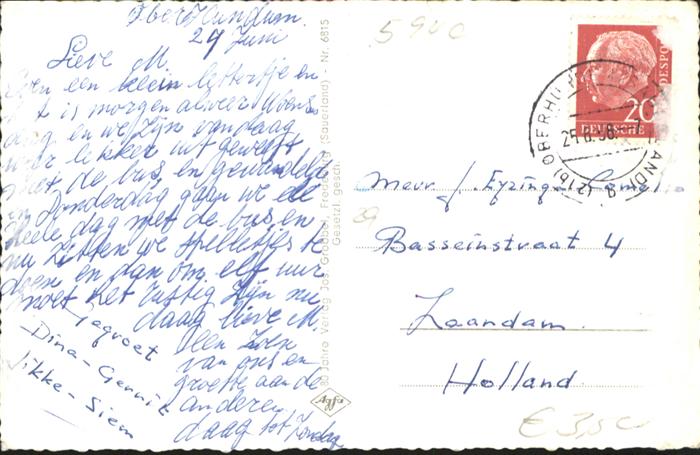 Oberhundem.
24 Juni
Lieve M.
even een klein lettertje en
't is morgen alweer Woens
dag en we zijn vandaag
weer lekker uit geweest
met de bus, en gewandeld
en Donderdag gaan we de
heele dag met de bus en
nu zitten we spelletjes te
doen en dan om elf uur
moet het rustig zijn nu
daag lieve M.
een zoen
van ons en
groetjes aan de
anderen
daag tot Zondag
Jacquest
Dina - Gerrit
Jikke - Siem
80 Jahre Verlag Jos. Grobbel, Fredeburg (Sauerland) - Nr. 6815
Gesetzl. gesch.
Agfa
5940
DEUTSCHE BUNDESPOST
20
OBERHUNDEM
25.6.58.
Mevr J. Eyzinga
Basseinstraat 4
Zaandam.
Holland.
€ 3,50